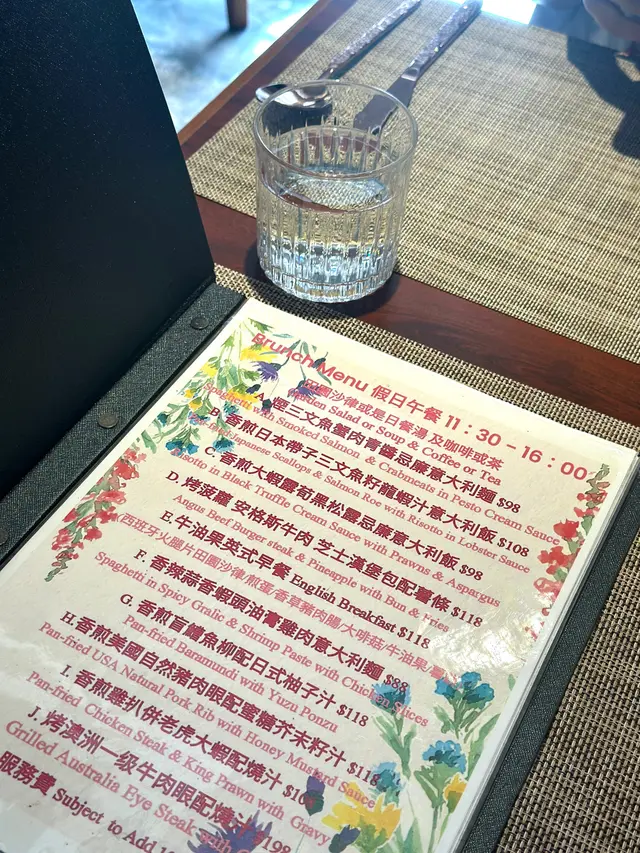 Brunch Menu 假日午餐 11 : 30 - 16 : 00
田園沙律或是日餐湯 及咖啡或茶
Garden Salad or Soup & Coffee or Tea
A. 煙三文魚蟹肉青醬忌廉意大利麵 $98
Spaghetti with Smoked Salmon & Crabmeats in Pesto Cream Sauce
B. 香煎日本帶子三文魚籽龍蝦汁意大利飯 $108
Japanese Scallops & Salmon Roe with Risotto in Lobster Sauce
C. 香煎大蝦露筍黑松露忌廉意大利飯 $98
Risotto in Black Truffle Cream Sauce with Prawns & Aspargus
D. 烤菠蘿 安格斯牛肉 芝士漢堡包配薯條 $118
Angus Beef Burger steak & Pineapple with Bun & Fries
E. 牛油果英式早餐 English Breakfast $118
(西班牙火腿片田園沙律/煎蛋/香草豬肉腸/大啡菇/牛油果/
F. 香辣蒜香蝦頭油膏雞肉意大利麵 $88
Spaghetti in Spicy Gralic & Shrimp Paste with Chicken Slices
G. 香煎盲鰽魚柳配日式柚子汁 $118
Pan-fried Baramundi with Yuzu Ponzu
H. 香煎美國自然豬肉眼配蜜糖芥末籽汁 $118
Pan-fried USA Natural Pork Rib with Honey Mustard Sauce
I. 香煎雞扒併老虎大蝦配燒汁
Pan-fried Chicken Steak & King Prawn with Gravy
J. 烤澳洲一级牛肉眼配燒汁 $198
Grilled Australia Eye Steak with
服務費 Subject to Add